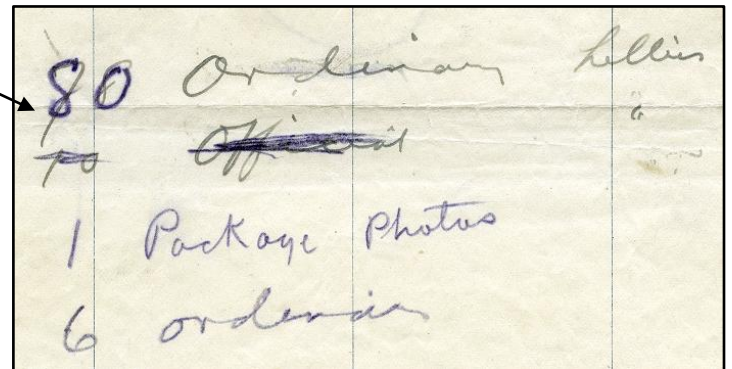 80 Ordinary Letters
10 Official "
1 Package Photos
6 ordinary